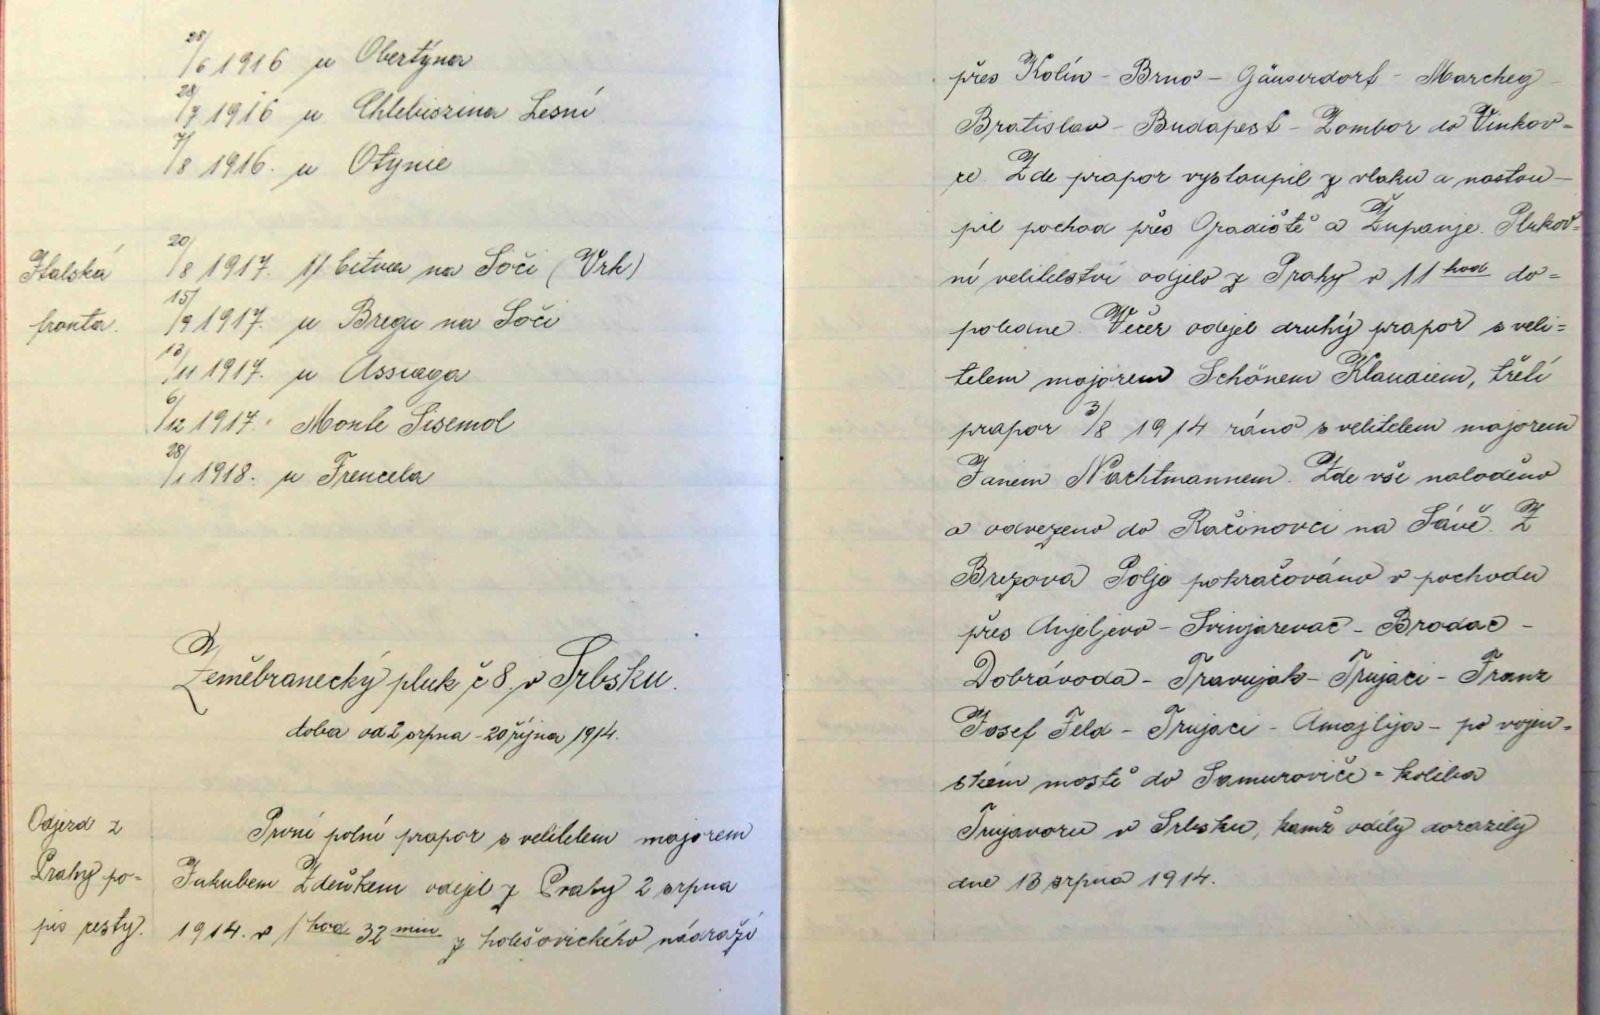 28/6 1916 u Obertýna
28/7 1916 u Chlebiszina Lesní
7/8 1916. u Otynie
Italská
fronta.
20/8 1917. 11. bitva na Soči (Vrh)
15/9 1917. u Bregu na Soči
13/11 1917. u Assiaga
6/12 1917. Monte Sisemol
28/1 1918. u Frencela
Zeměbranecký pluk č 8. v Srbsku.
doba od 2 srpna - 20 října 1914.
Odjezd z
Prahy po=
pis cesty.
První polní prapor s velitelem majorem
Jakubem Zdeňkem odejel z Prahy 2 srpna
1914. v 1 hod 32 min z holešovického nádraží
přes Kolín - Brno - Gänserdorf - Marcheg
Bratislav - Budapest - Zombor do Vinkov=
ce. Zde prapor vystoupil z vlaku a nastou-
pil pochod přes Gradiště a Županje. Plukov=
ní velitelství odjelo z Prahy v 11 hod do=
poledne. Večer odejel druhý prapor s veli=
telem majorem Schönem Klaudiem, třetí
prapor 3/8 1914 ráno s velitelem majorem
Janem Nachtmannem. Zde vše naloděno
a odvezeno do Račinovci na Sávě. Z
Brezova Polja pokračováno v pochodu
přes Anjeljevo - Svinjarevac - Brodac -
Dobrávoda - Travnjak - Trnjaci - Franz
Josef Feld - Trnjaci - Amajlija - po vojen=
ském mostě do Samuroviče = koliba
Trnjavoru v Srbsku, kamž oddíly dorazily
dne 13 srpna 1914.